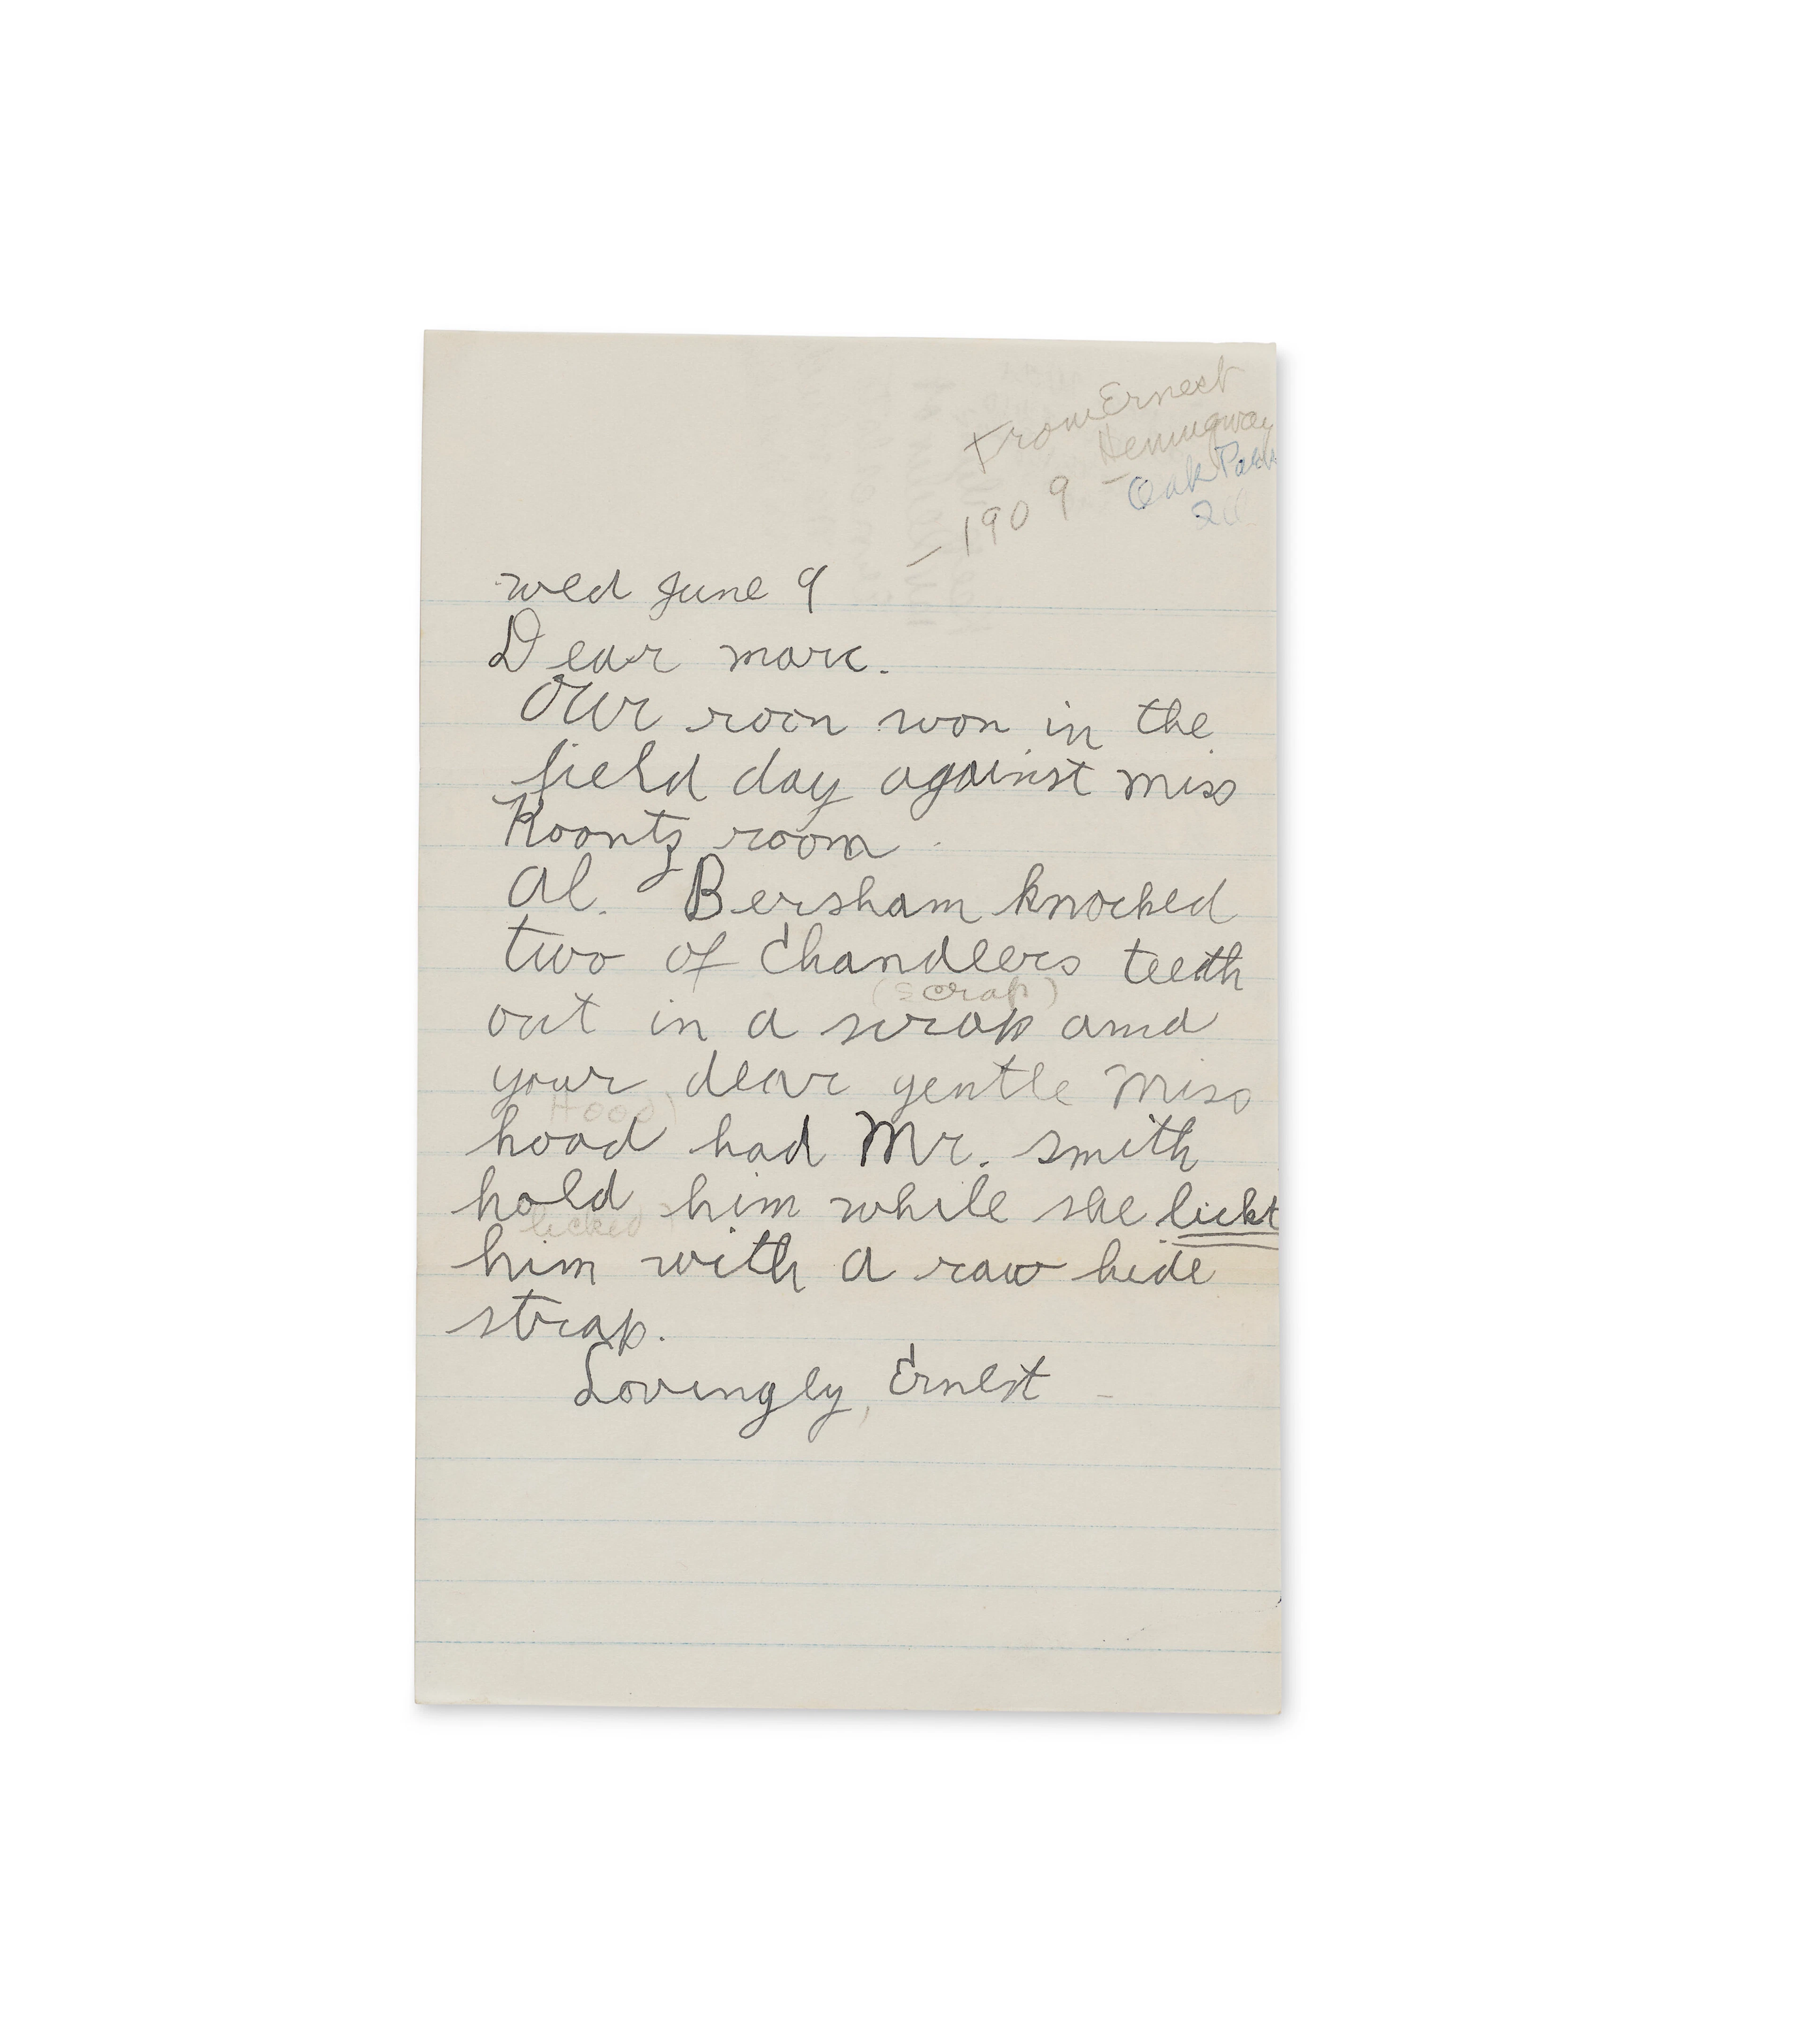 From Ernest
Hemingway
– 1909 –
Oak Park
Ill
wed June 9
Dear marc.
Our room won in the
field day against miss
Koontz room.
Al. Bersham knocked
two of Chandlers teeth
(scrap)
out in a scrap amd
your dear gentle Miss
Hood)
hood had Mr. smith
hold him while she lickt
licked
him with a raw hide
strap.
Lovingly, Ernest